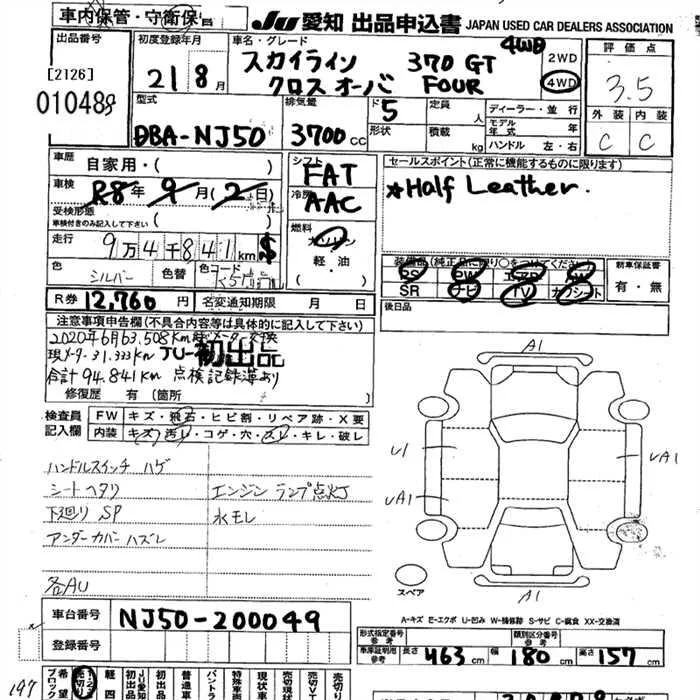 車内保管・守衛保管
JU 愛知 出品申込書 JAPAN USED CAR DEALERS ASSOCIATION
出品番号
[2126]
010488
初度登録年月
21 8月
車名・グレード
スカイライン 370GT 4WD
クロスオーバ FOUR
2WD
4WD
評価点
3.5
外装 内装
C C
型式
DBA-NJ50
排気量
3700cc
ド 5
形状
定員 人
積載 kg
ディーラー・並行
モデル年式 年
ハンドル 左・右
車歴
自家用・( )
車検
R8年9月(2日)
受検形態
車検付きのみ記入して下さい ( )
走行
9万4千841km $
色 シルバー
色替
色コード K51
シフト
FAT
冷房
AAC
燃料
ガソリン
軽・油
( )
セールスポイント(正常に機能するものに限ります)
★Half Leather.
装備品(純正品に限り○をつけてください)
PS PW エアB AW
SR ナビ TV カワシート
新車保証書
有・無
後日品
R券 12,760円
名変通知期限 月 日
注意事項申告欄(不具合内容等は具体的に記入して下さい)
2020年6月63,508Km時メーター交換
現メーター31.333Km JU-初出品
合計94.841Km 点検記録簿あり
修復歴 有(箇所
検査員記入欄
FW キズ・飛石・ヒビ割・リペア跡・X要
内装 キズ・汚レ・コゲ・穴・スレ・キレ・破レ
ハンドルスイッチ ハゲ
シートヘタリ エンジンランプ点灯
下廻りSP 水モレ
アンダーカバーハズレ
各AU
A1
U1
UA1
UA1
A1
スペア
A-キズ E-エクボ U-凹み W-補修跡 S-サビ C-腐食 XX-交換済
車台番号 NJ50-200049
登録番号
形式指定番号 参考
類別区分番号 参考
車庫証明用 参考
長さ 463cm
幅 180cm
高さ 157cm
197
希望ブロック
売切り
軽四
JU愛知初出品
普通車
パントラ
特殊車両
現状車
売切現状
売切VT
売切り